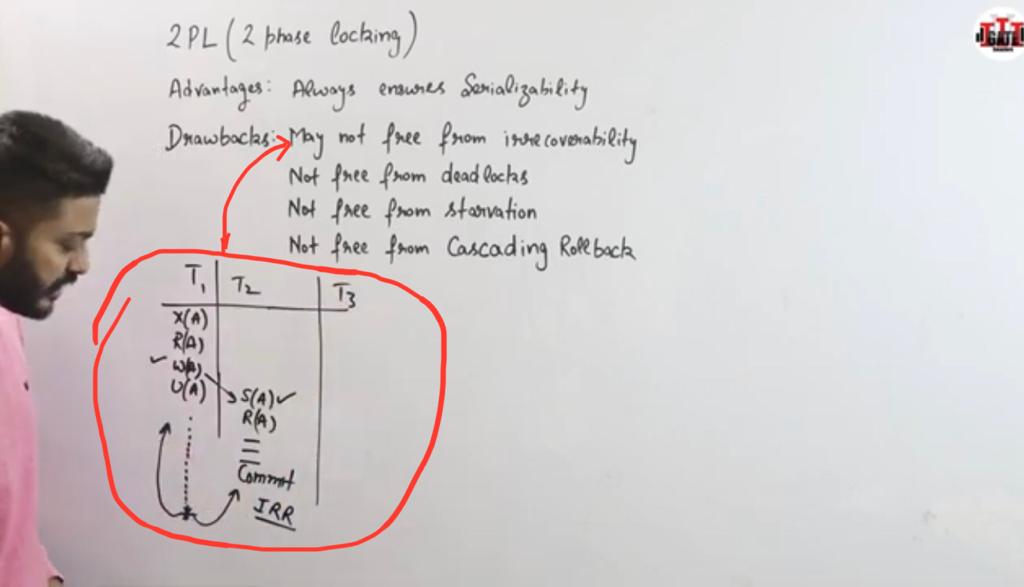 2PL (2 phase locking)
Advantages: Always ensures Serializability
Drawbacks: May not free from irrecoverability
Not free from deadlocks
Not free from starvation
Not free from Cascading Rollback
T1 T2 T3
X(A)
R(A)
W(A)
U(A)
S(A)
R(A)
Commit
IRR
GATE